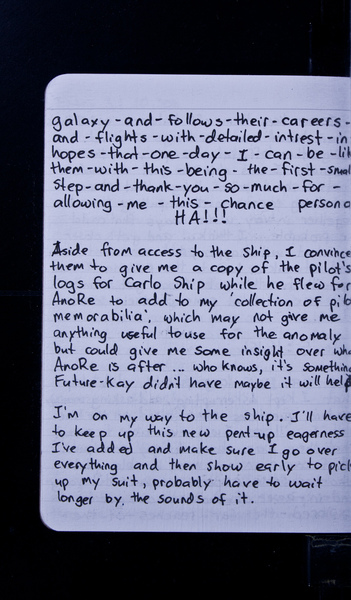 galaxy-and-follows-their-careers-
and-flights-with-detailed-intrest-in
hopes-that-one-day-I-can-be-lik
them-with-this-being-the-first-small
step-and-thank-you-so-much-for-
allowing-me-this-chance persona
HA!!!
Aside from access to the ship, I convince
them to give me a copy of the pilot's
logs for Carlo Ship while he flew for
AnoRe to add to my 'collection of pilo
memorabilia', which may not give me
anything useful to use for the anomaly
but could give me some insight over wha
AnoRe is after ... who knows, it's something
Future-Kay didn't have maybe it will help
I'm on my way to the ship. I'll have
to keep up this new pent-up eagerness
I've added and make sure I go over
everything and then show early to pick
up my suit, probably have to wait
longer by. the sounds of it.